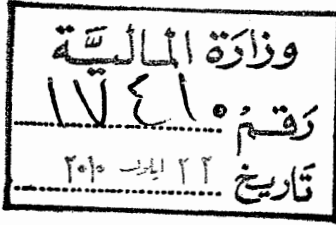 وزارة المالية
رقم ١٧٤١٠
تاريخ ٢٢ ايلول ٢٠٢٠